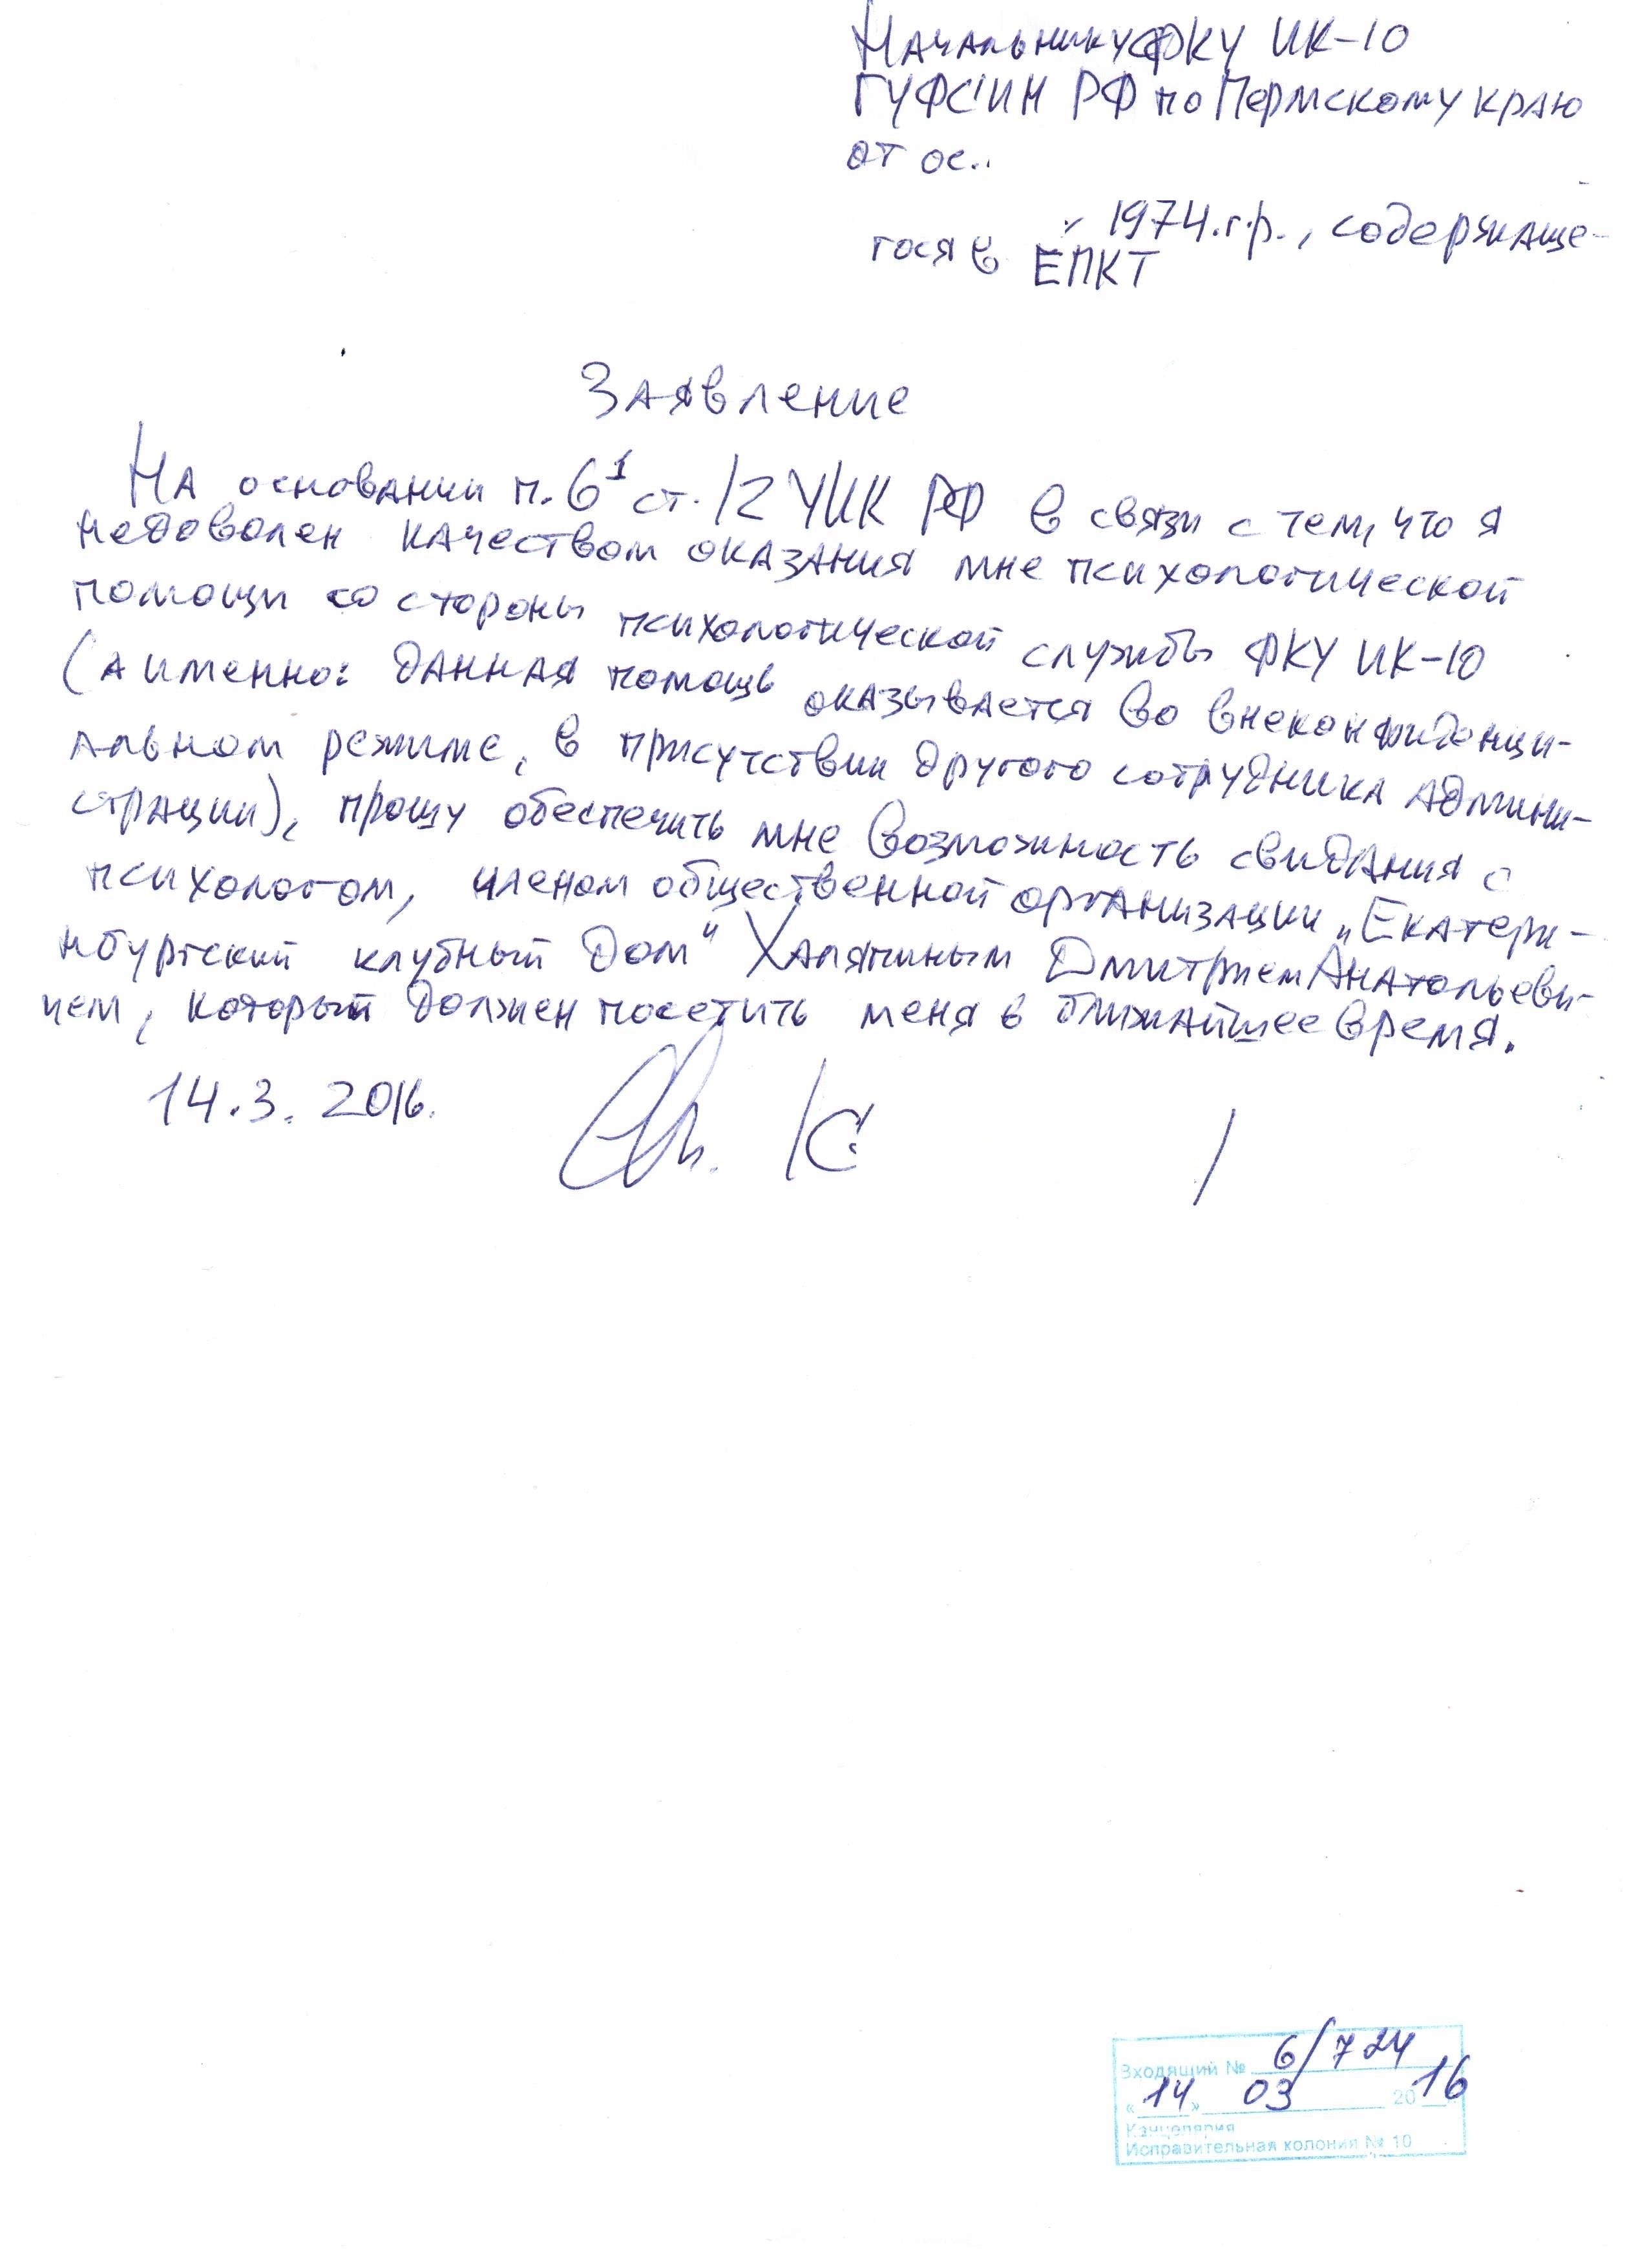 Начальнику ФКУ ИК-10
ГУФСИН РФ по Пермскому краю
от ос..
1974.г.р., содержаще-
гося в ЕПКТ
Заявление
На основании п. 6¹ ст. 12 УИК РФ в связи с тем, что я
недоволен качеством оказания мне психологической
помощи со стороны психологической службы ФКУ ИК-10
(а именно: данная помощь оказывается во внеконфиденци-
альном режиме, в присутствии другого сотрудника админи-
страции), прошу обеспечить мне возможность свидания с
психологом, членом общественной организации „Екатери-
нбургский клубный дом" Халяпиным Дмитрием Анатольеви-
чем, который должен посетить меня в ближайшее время.
14.3.2016.
Входящий № 6/724
«14» 03 2016
Канцелярия
Исправительная колония № 10